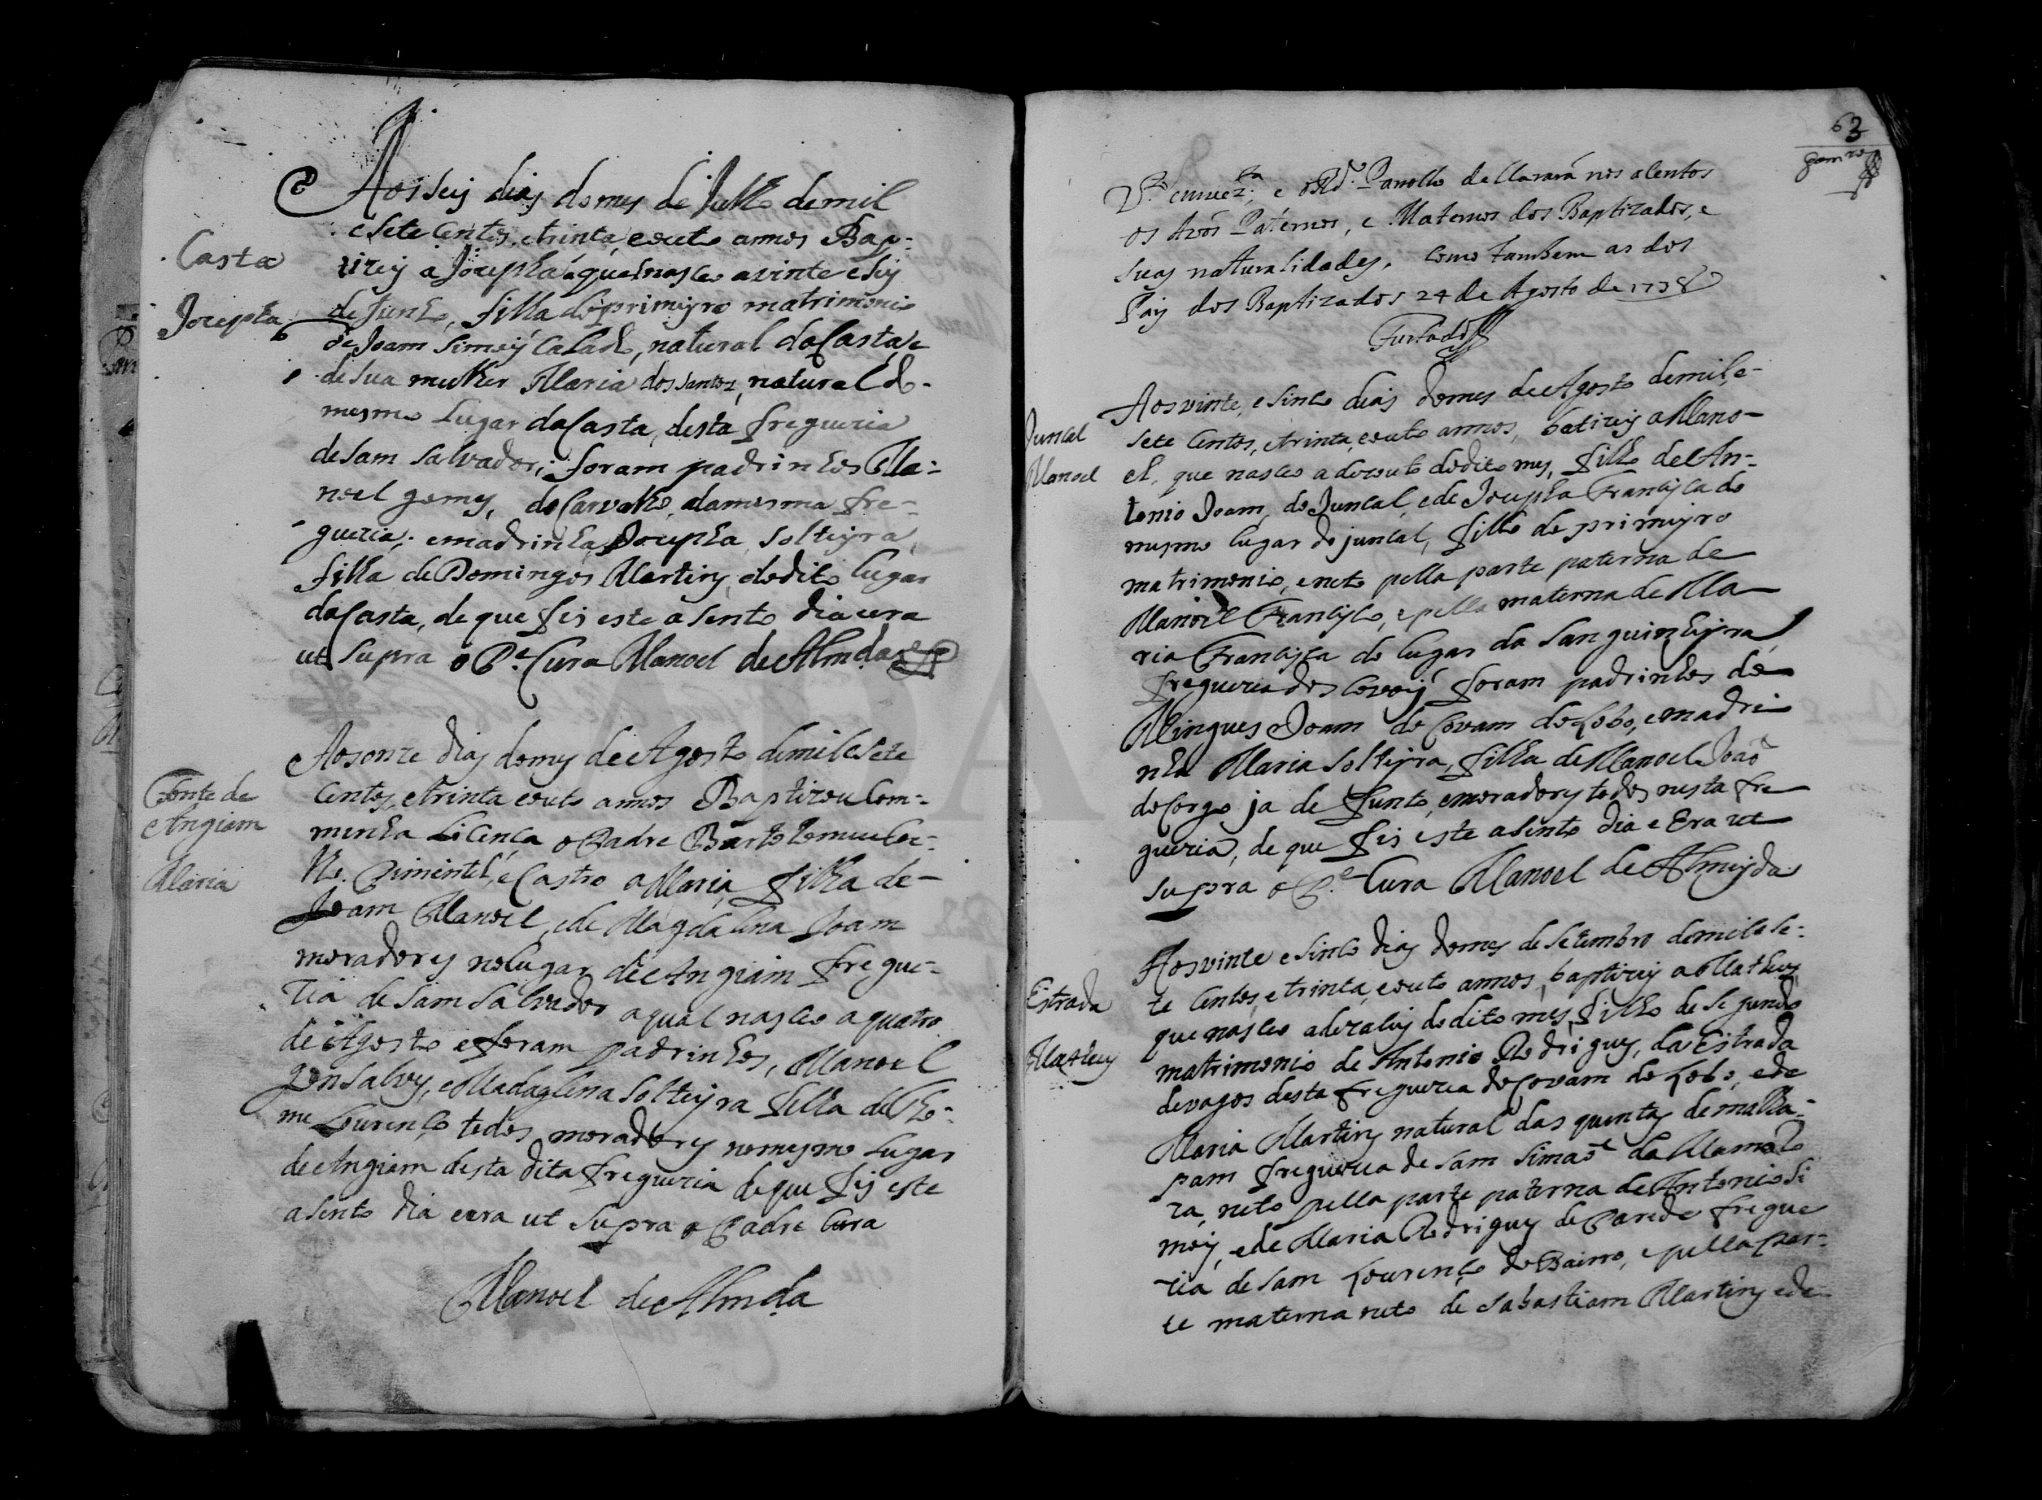 Aos seis dias do mes de Julho de mil
e sete Centos, e trinta, e outo annos Bap-
tizey a Josepha a qual nasceo a vinte e seis
de Junho, filha do primeyro matrimonio
de Joam Simoiz Calado, natural da Casta, e
de sua mulher Maria dos Santos, natural do
mesmo lugar da Casta, desta freguezia
de Sam Salvador; foram padrinhos Ma-
noel gomes, do Carvalho, da mesma fre-
guezia; e madrinha Josepha, solteyra,
filha de Domingos Martins, do dito lugar
da Casta, de que fis este asento dia e era
ut supra o P.e Cura Manoel de Almda
Casta
Josepha
Aos onze dias do mes de Agosto de mil e sete
Centos, e trinta e outo annos Baptizou Com
minha Licença o Padre Bartolomeu
Pimintel, e Castro a Maria, filha de
Joam Manoel, e de Magdalina Joam
moradores no lugar de Angiam fregue-
zia de Sam Salvador a qual nasceo a quatro
de Agosto e foram padrinhos, Manoel
gonsalves, e Madaglina solteyra filha de Tho-
me Lourenço todos moradores no mesmo lugar
de Angiam desta dita freguezia de que fis este
asento dia e era ut supra o Padre Cura
Manoel de Almda
Fonte de
Angiam
Maria
63
V.to e o R.do Parocho declarará nos asentos
os Avós Paternos, e Maternos dos Baptizados, e
suas naturalidades, como tambem as dos
Pais dos Baptizados 24 de Agosto de 1738
Furtado
Aos vinte, e sinco dias do mes de Agosto de mil, e
sete Centos, e trinta, e outo annos, batizey a Mano-
el, que nasceo a dezouto do dito mes, filho de An-
tonio Joam, do Juncal, e de Josepha Francisca do
mesmo lugar do juncal, filho do primeyro
matrimonio, e neto pella parte paterna de
Manoel Francisco, e pella materna de Ma-
ria Francisca do lugar da Sanguinheyra
freguezia de foram padrinhos do
Mingues Joam do Covam do Lobo, e madri
nha Maria solteyra, filha de Manoel João
do Corgo ja defunto, e moradores todos nesta fre
guezia, de que fis este asento dia e Era ut
supra o P.e Cura Manoel de Almeyda
Juncal
Manoel
Aos vinte e sinco dias do mes de setembro de mil e se-
te Centos, e trinta, e outo annos, baptizey a Matheus
que nasceo a dezaseis do dito mes, filho de segundo
matrimonio de Antonio Rodrigues, da Estrada
de vagos desta freguezia do Covam do Lobo, e de
Maria Martins natural das quintas de malha-
pam freguezia de Sam Simaõ da Mamaro
za, neto pella parte paterna de Antonio Si
mois, e de Maria Rodrigues de Parede fregue
zia de Sam Lourenço do Bairro, e pella par-
te materna neto de Sabastiam Martins e de
Estrada
Matheus